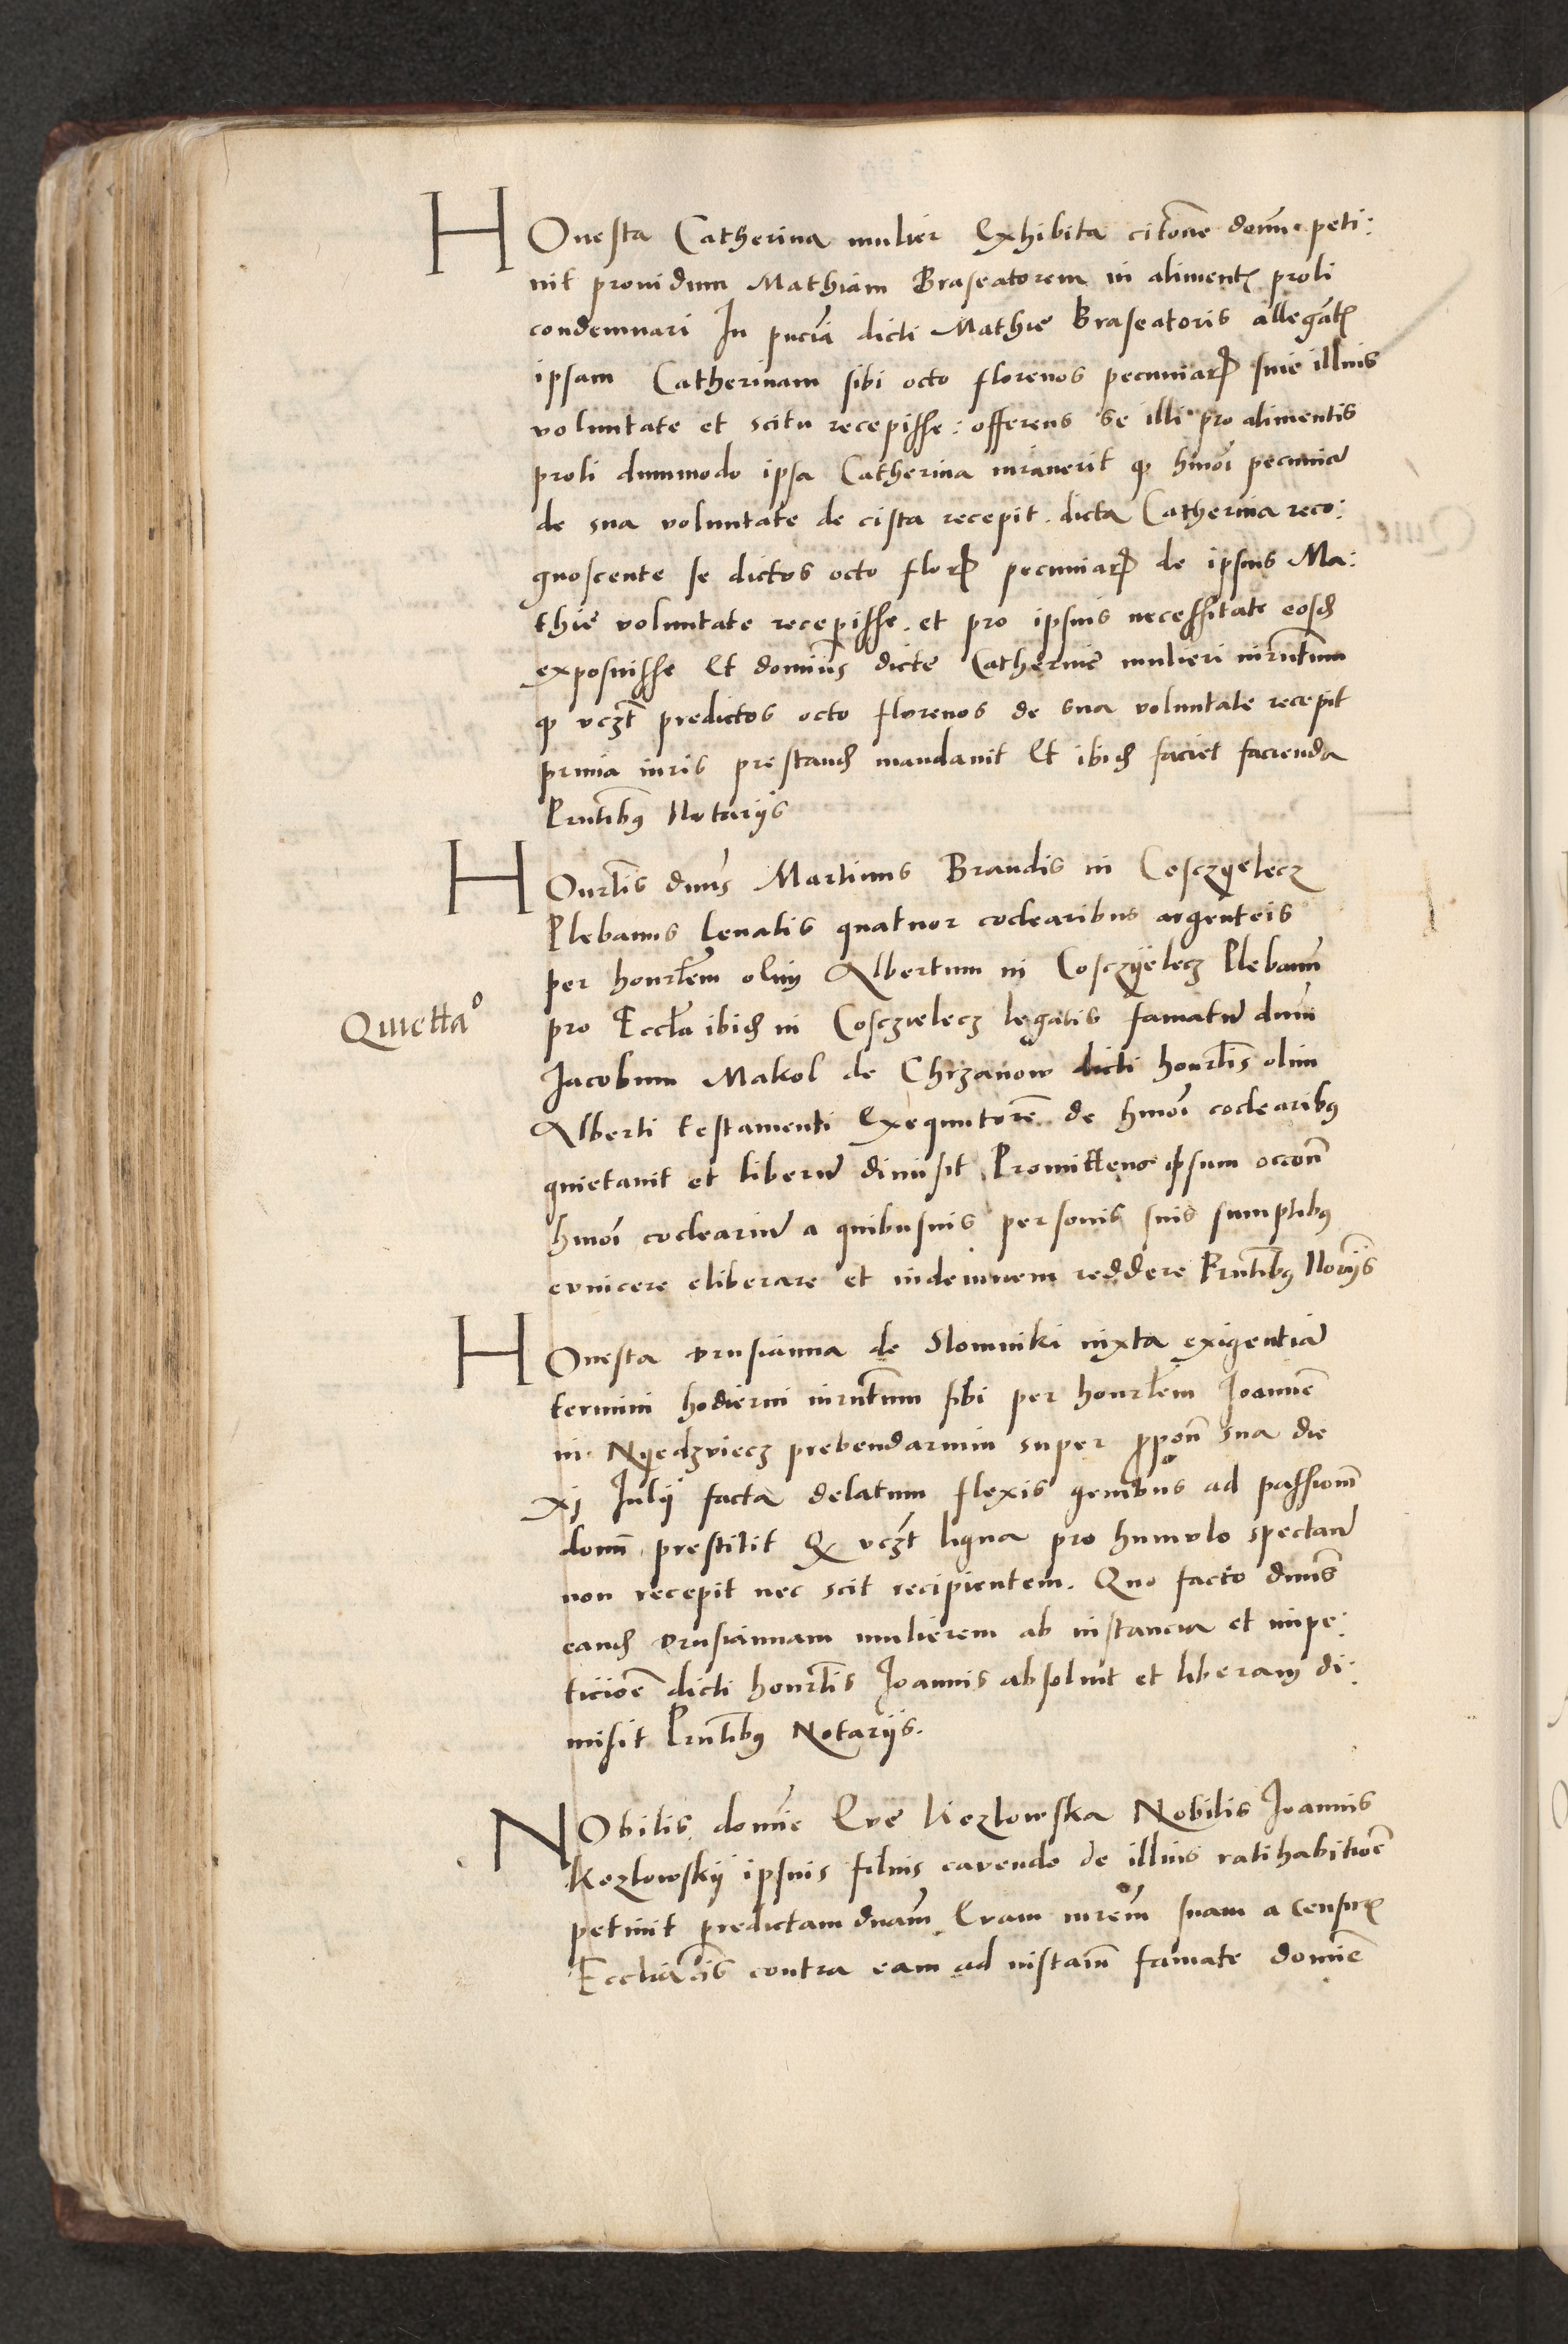 HOnesta Catherina mulier Exhibita citōne domū peti:
uit prouidum Mathiam Braseatorem in aliment proli
condemnari In pn̄cia dicti Mathie Braseatoris allegāt
ipsam Catherinam sibi octo florenos pecuniar sine illius
voluntate et scitu recepisse: offerens se illi pro alimentis
proli dummodo ipsa Catherina iurauerit q hmōi pecuniā
de sua voluntate de cista recepit. dicta Catherina reco:
gnoscente se dictos octo flor pecuniar de ipsius Ma:
thie voluntate recepisse. et pro ipsius necessitate eosd
exposuisse Et dominūs dicte Catherine mulieri iurn̄tum
q vczt predictos octo florenos de sua voluntate recepit
primia iuris prestand mandauit Et ibid faciet facienda
Prn̄tibus Notarijs
HOnrlis dnūs Martinus Brandis in Cosczyelecz
Plebanus leuatis quatuor coclearibus argenteis
per honrlem olim Albertum in Cosczyelecz Plebanū
Quietta°
pro Eccl̄a ibid in Cosczielecz legatis famatū dnm̄
Jacobum Makol de Chrzanow dicti honrlis olim
Alberti testamenti Exequutorē de hmōi coclearibus
quietauit et liberū dimisit Promittens ipsum occōn
hmōi coclearium a quibusuis personis suis sumptibus
euincere eliberare et indemnem reddere Prn̄tibus Norijs
HOnesta orusianna de Slomniki iuxta exigentiā
termini hodierni iurn̄tum sibi per honrlem Joannē
in Nyedzviecz prebendarium super ppon̄ sua die
xj Julij facta delatum flexis genibus ad passionē
domī prestitit Q vczt ligna pro humulo spectan̄
non recepit nec scit recipientem. Quo facto dnūs
eand orusiannam mulierem ab instancia et impe:
ticiōē dicti honrlis Joannis absoluit et liberam di:
misit Prn̄tibus Notarijs.
NObilis domīe Eve Kozlowska Nobilis Joannis
Kozlowskij ipsius filius cavendo de illius ratihabitiōē
petiuit predictam dnām Evam mrem̄ suam a censur
Eccliācis contra eam ad instam̄ famate domīe